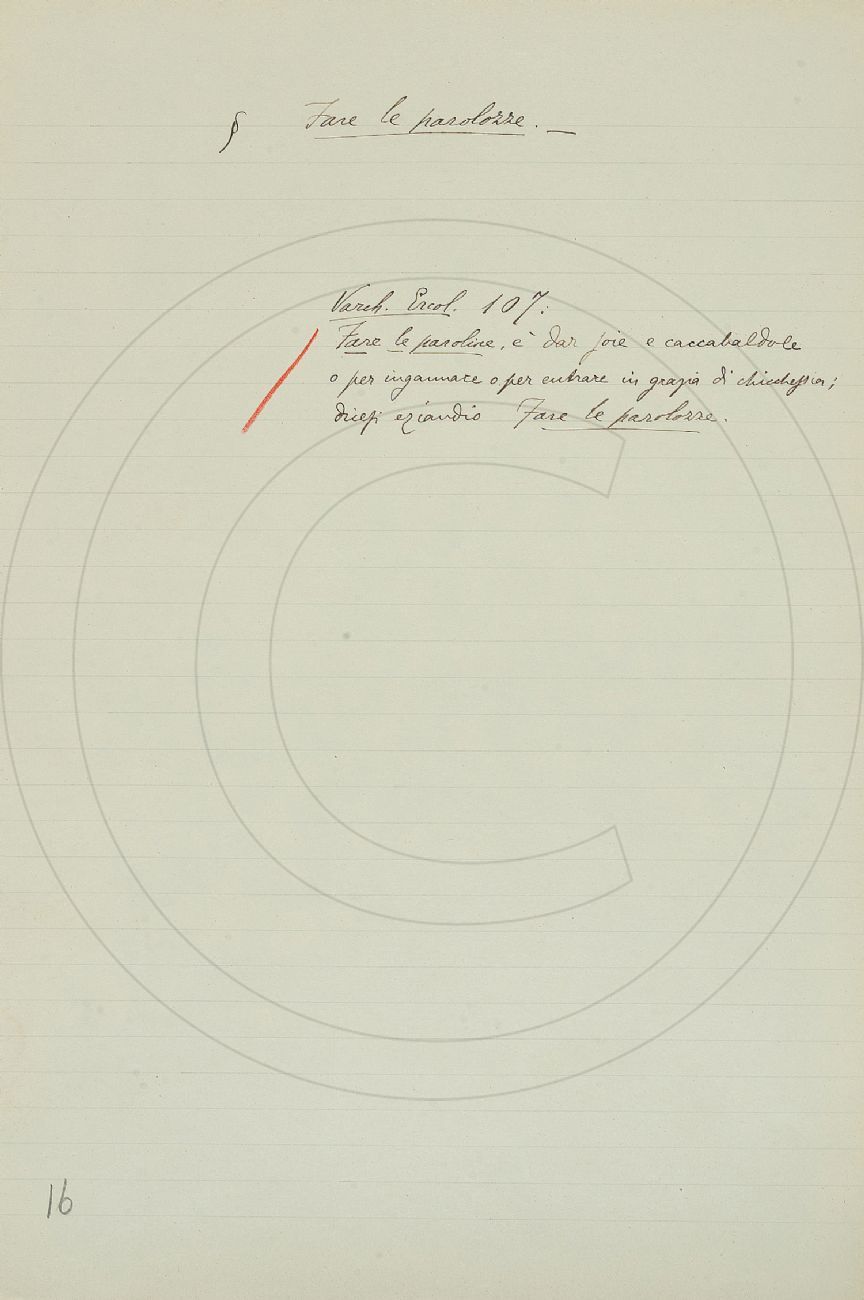 § Fare le parolozze. —
Varch. Ercol. 107:
Fare le paroline, è dar joie e caccabaldole
o per ingannare o per entrare in grazia di chicchessia;
dicesi eziandio Fare le parolozze.
16